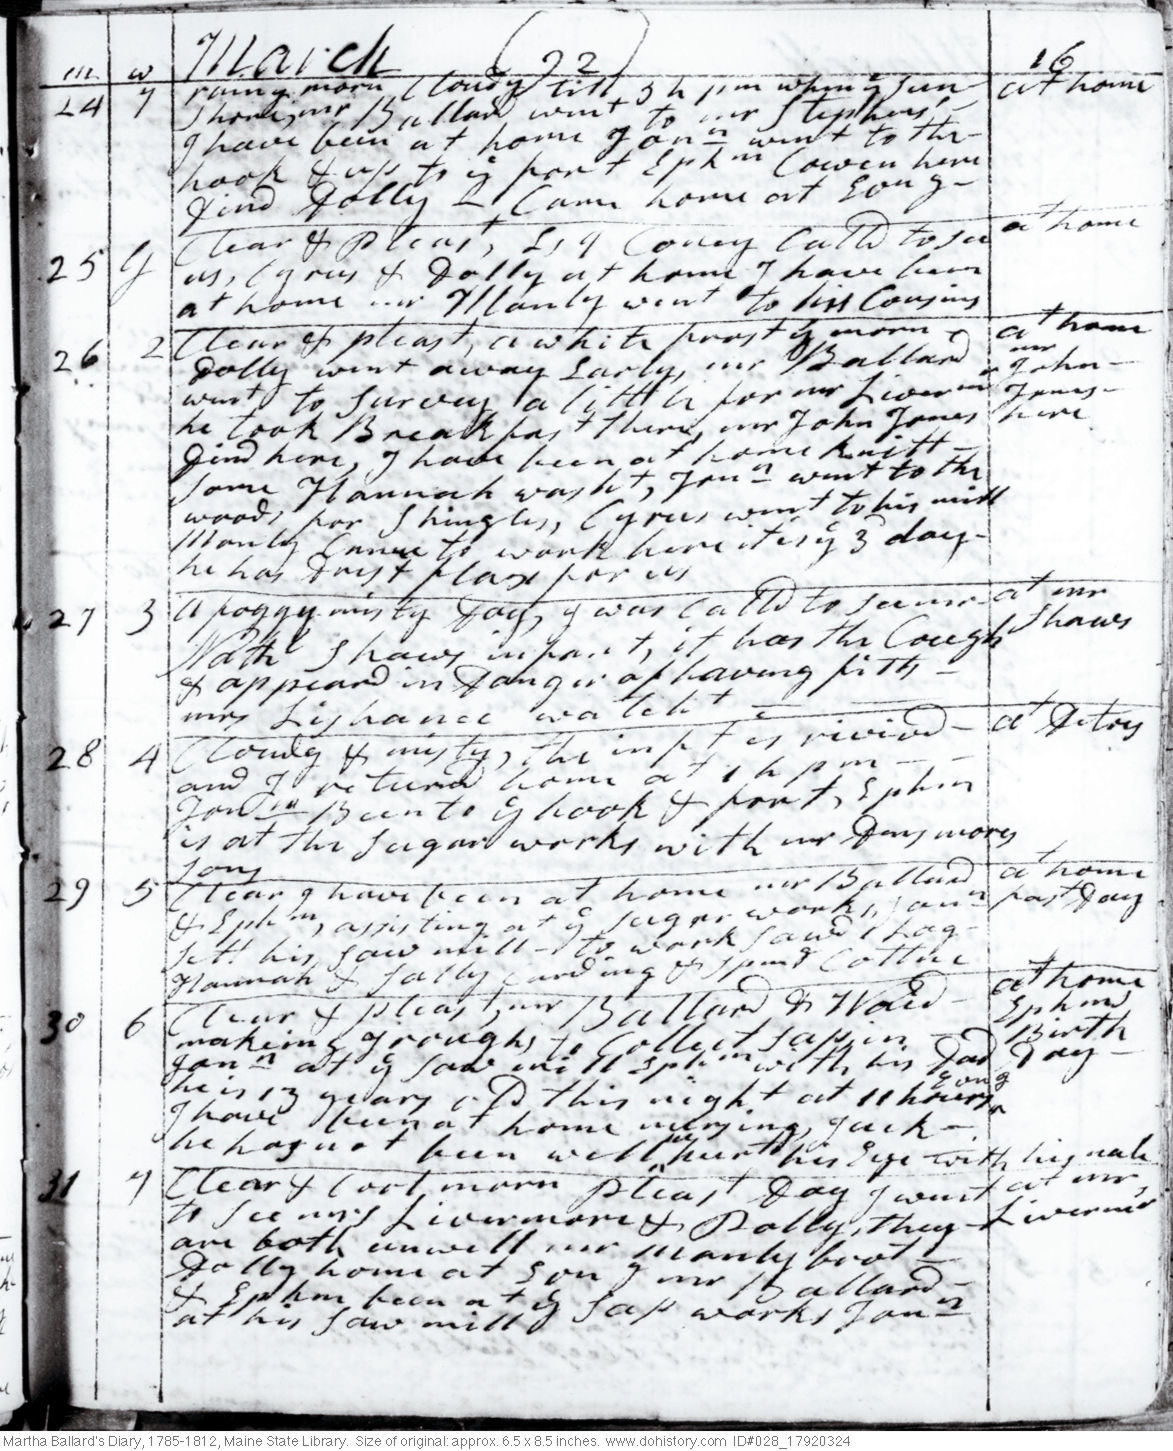 March (92) 16
m w
24 7 rainy morn, Cloudy till 3 h pm when ye sun at home
Shone, mr Ballard went to mr Stephens'
I have been at home Jonn went to the
hook & up to ye fort Ephm Cowen here
Dind Dolly Came home at Evng
25 G Clear & pleast, Esq Coney Calld to see at home
us, Cyrus & Dolly at home I have been
at home mr Manly went to his Cousins
26 2 Clear & pleast, a white frost ys morn at home
Dolly went away Early, mr Ballard mr
went to survey a little for mr Livermor John
he took Breakfast there, mr John Jones Jones
Dind here, I have been at home knitt here
some Hannah washt, Jonn went to the
woods for Shingles, Cyrus went to his mill
Manly Came to work here it is ye 3d day
he has Drest flax for us
27 3 A foggy misty Day, I was Calld to see mr at mr
Nathl Shaws infant, it has the Cough Shaws
& appeard in Danger of having fitts
mrs watcht
28 4 Cloudy & misty, the inft is revivd at Ditoes
and I returnd home at 1 h pm
Jonn Been to ye hook & fort, Ephm
is at the Sugar works with mr Densmores
Sons
29 5 Clear I have been at home mr Ballard at home
& Ephm, assisting at ye suger works, Jonn fast Day
sett his saw mill to work sawd 1 Log
Hannah & Sally Carding & Sping Cotten
30 6 Clear & pleast, mr Ballard & Waid at home
makeing Troughs to Collect sap in Ephm
Jonn at ye saw mill Ephm with his Dad Birth
he is 13 years old this night at 11 hours Evng Day
I have been at home nursing, Jack
he has not been well hurt his Eye with his nale
31 7 Clear & Cool morn pleast Day I went at mr
to see mrs Livermore & Dolly, they Livermors
are both unwell mr Manly brot
Dolly home at Evng mr Ballard
& Ephm been at ye sap works Jonn
at his saw mill
Martha Ballard's Diary, 1785-1812, Maine State Library. Size of original: approx. 6.5 x 8.5 inches. www.dohistory.com ID#028_17920324